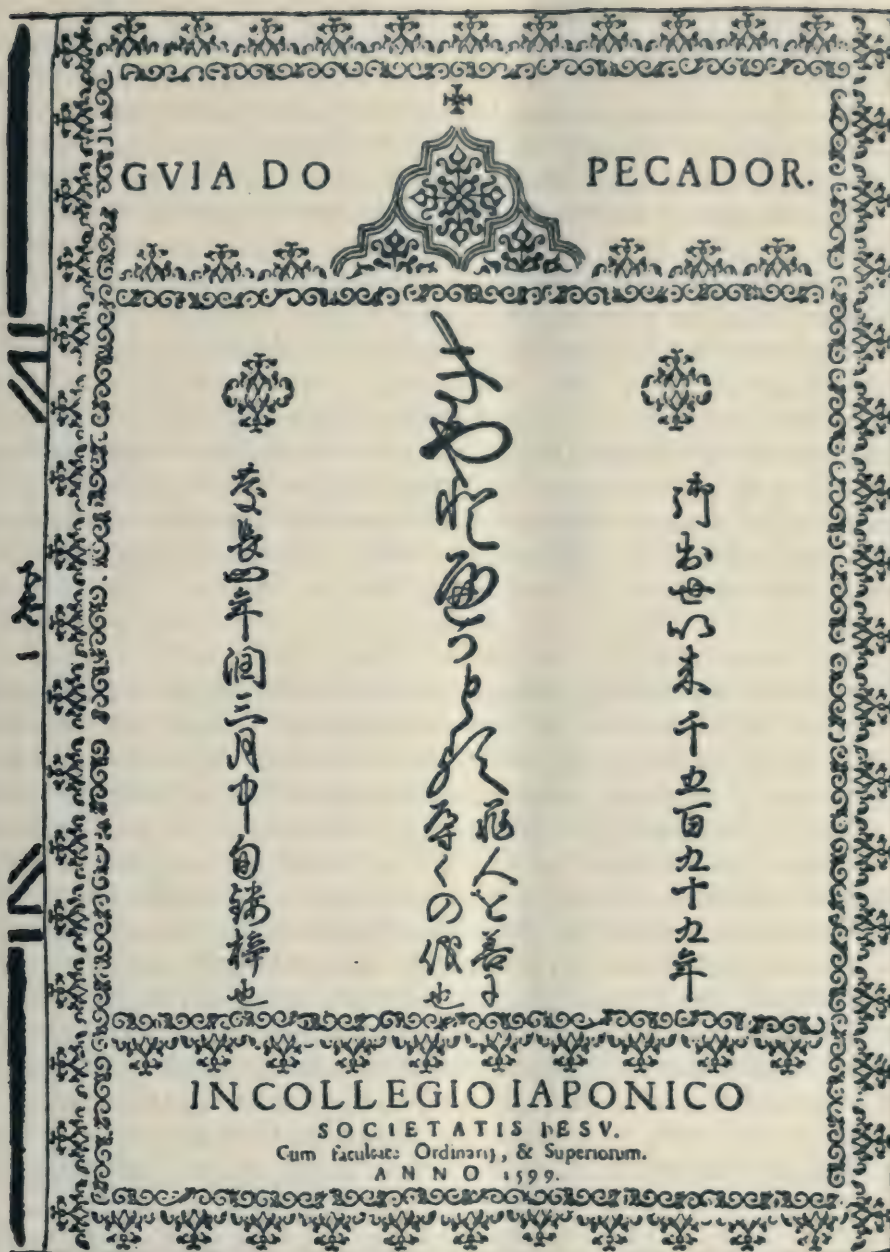 GVIA DO PECADOR.
御出世以来千五百九十九年
きやとへかとる
罪人を善に
導くの儀也
慶長四年潤三月中旬鏤梓也
IN COLLEGIO IAPONICO
SOCIETATIS IESV.
Cum facultate Ordinarij, & Superiorum.
ANNO 1599.